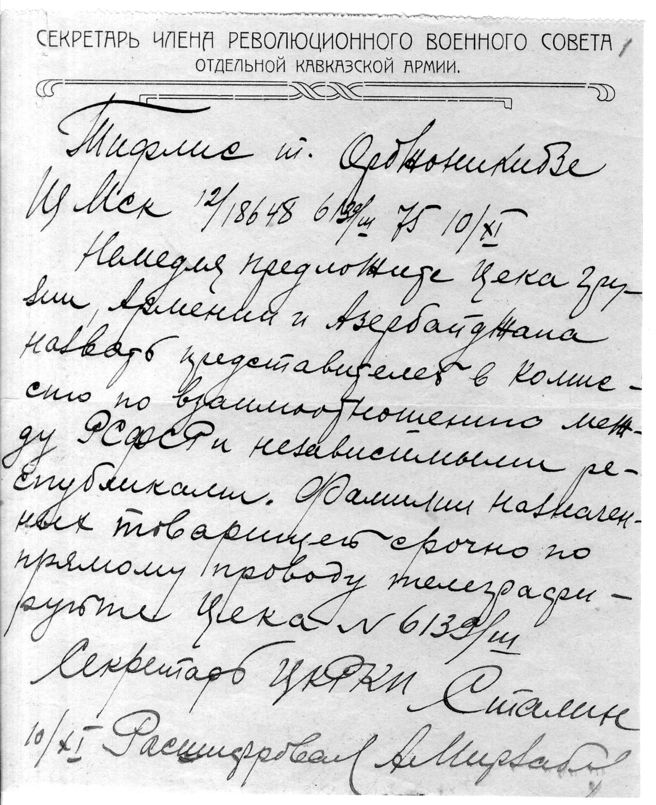 СЕКРЕТАРЬ ЧЛЕНА РЕВОЛЮЦИОННОГО ВОЕННОГО СОВЕТА 1
ОТДЕЛЬНОЙ КАВКАЗСКОЙ АРМИИ.
Тифлис т. Орджоникидзе
Ц Мск 12/18648 6139/ш 75 10/XI
Немедля предложите Цека Гру-
зии, Армении и Азербайджана
назвать представителей в комис-
сию по взаимоотношению меж-
ду РСФСР и независимыми ре-
спубликами. Фамилии назначен-
ных товарищей срочно по
прямому проводу телеграфи-
руйте Цека N 6139/ш
Секретарь ЦКРКП Сталин
10/XI Расшифровал